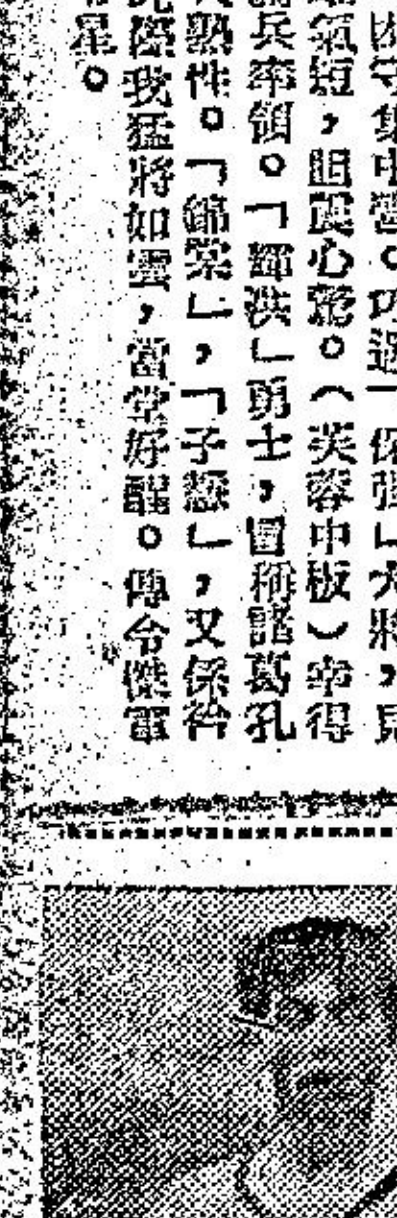 困守集中營。巧遇「保強」大將，
氣短，眼眼心驚。（芙蓉中板）幸得
兵率領。「輝洪」勇士，冒稱諸葛孔
熟性。「錦棠」，「子源」，又係
際我猛將如雲，當堂好醒。傳令傑軍
星。